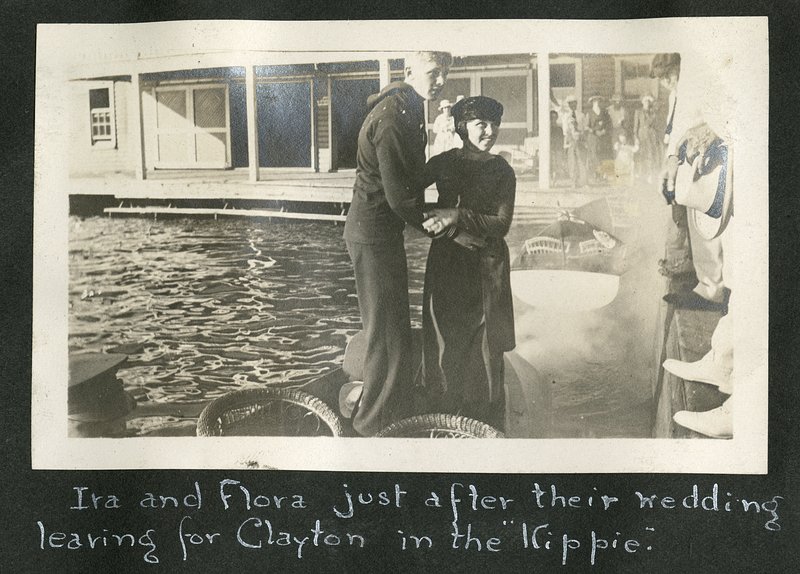 Ira and Flora just after their wedding
leaving for Clayton in the "Kippie".